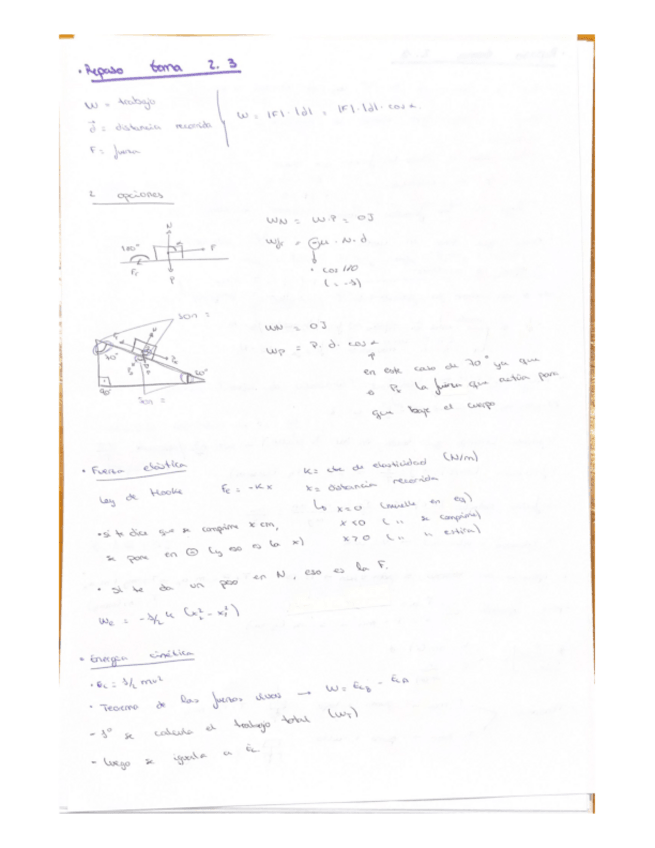 · Repaso tema 2.3
W = trabajo
d = distancia recorrida
F = fuerza
W = |F| · |d| = |F| · |d| · cos α.
2 opciones
N
180°
F
Fr
P
WN = WP = 0J
Wfr = -μ · N · d
· cos 180
(= -1)
son =
N
70°
90°
WN = 0J
WP = P · d · cos α
en este caso de 70° ya que
es Px la fuerza que actúa para
que baje el cuerpo
· Fuerza elástica
Ley de Hooke Fe = -Kx
K = cte de elasticidad (N/m)
x = distancia recorrida
↳ x=0 (muelle en eq)
x<0 ( '' se comprime)
x>0 ( '' '' estira)
· si te dice que se comprime x cm,
se pone en ⊖ (y eso es la x)
· Si te da un peso en N, eso es la F.
We = -1/2 k (x₂² - x₁²)
· Energía cinética
· Ec = 1/2 mv²
· Teorema de las fuerzas vivas → W = EcB - EcA
- 1º se calcula el trabajo total (WT)
- Luego se iguala a Ec